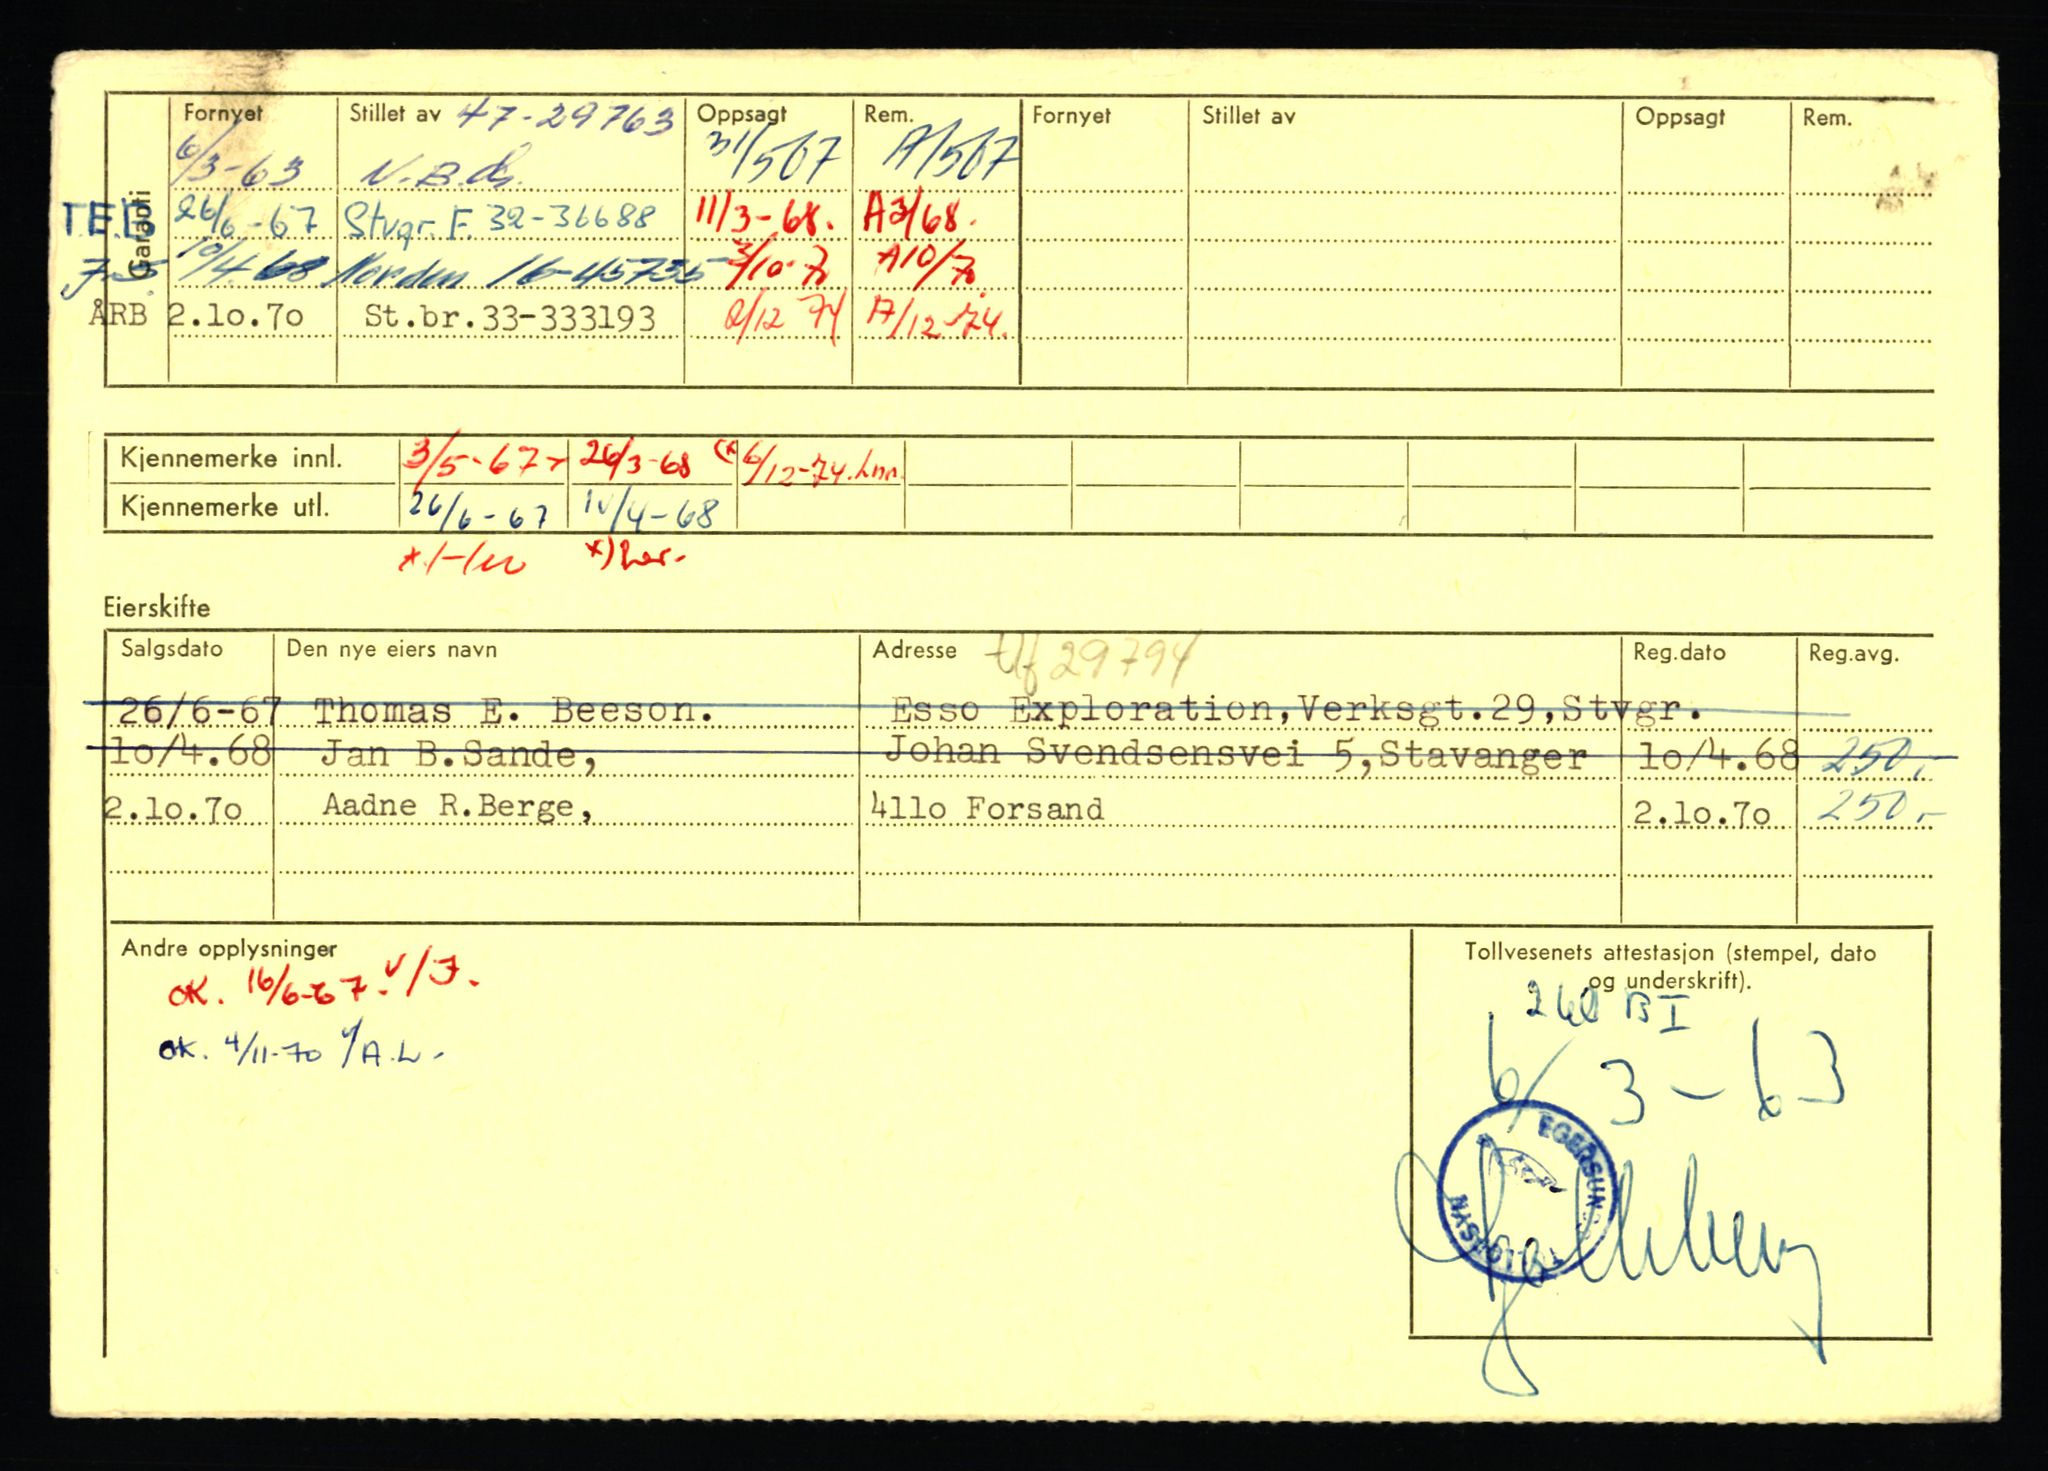 Garanti
Fornyet Stillet av 47-29763 Oppsagt Rem. Fornyet Stillet av Oppsagt Rem.
6/3-63 N.B. 31/5 67 A/5 67
TEB 26/6-67 Stvgr. F. 32-36688 11/3-68. A3/68.
10/4.68 Norden 16-45735 2/10-70 A10/70
ÅRB 2.10.70 St.br.33-333193 2/12 74 A/12-74.
Kjennemerke innl. 3/5-67 26/3-68 (x 6/12-74.
Kjennemerke utl. 26/6-67 10/4-68
Eierskifte
Salgsdato Den nye eiers navn Adresse tlf 29794 Reg.dato Reg.avg.
26/6-67 Thomas E. Beeson. Esso Exploration,Verksgt.29,Stvgr.
10/4.68 Jan B.Sande, Johan Svendsensvei 5,Stavanger 10/4.68 250,-
2.10.70 Aadne R.Berge, 4110 Forsand 2.10.70 250,-
Andre opplysninger
OK. 16/6-67. v/J.
OK. 4/11-70 v/A.L.
Tollvesenets attestasjon (stempel, dato
og underskrift).
260 B I
6/3-63
EGERSUND TOLLOPSYN